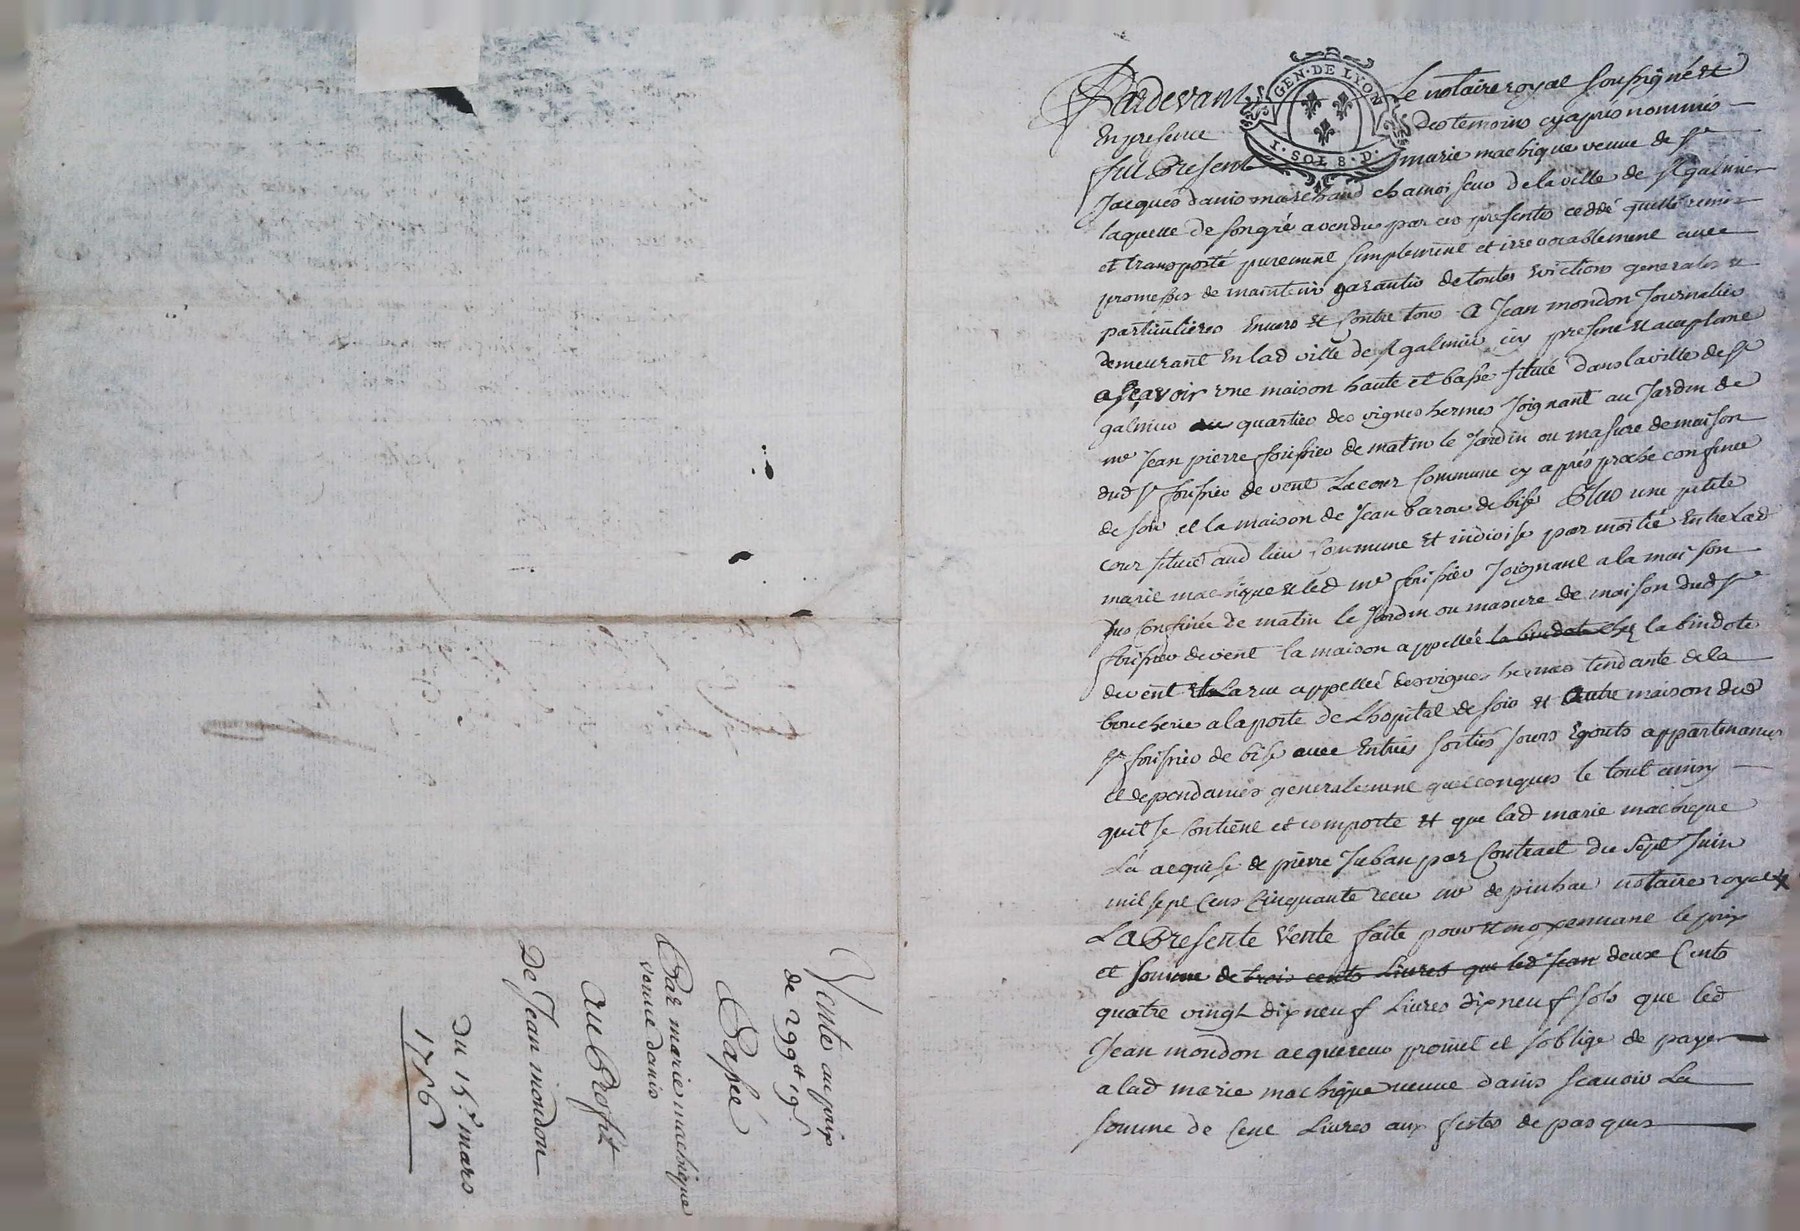 Vente au prix
de 299# 19s
Passé
Par marie machique
veuve danis
au Profit
De Jean mondon
Du 15e mars
1756
GEN·DE LYON
I·SOL 8·D·
Pardevant Le notaire royal soussigné et
En presence des temoins cy aprés nommés
fut Presente marie machique veuve de sr
Jacques danis marchand chamoiseur de la ville de st galmier
laquelle de son gré a vendu par ces presentes ceddé quitté remis
et transporté purement simplement et irrevocablement avec
promesses de maintenir garantir de toutes evictions generales et
particulieres Envers et Contre tous a Jean mondon Journalier
demeurant En lad ville de st galmier icy present et acceptant
a sçavoir une maison haute et basse située dans la ville de st
galmier au quartier des vignes hermes Joignant au Jardin de
me Jean pierre de matin le Jardin ou masure de maison
dud sr de vent La cour Commune cy aprés proche confinée
de soir et la maison de Jean baron de bise Plus une petite
cour située aud lieu Commune et indivise par moitié Entre Lad
marie machique et led me Joignant a la maison
sus Confinée de matin le Jardin ou masure de maison dud sr
de vent la maison appellée la bindote chez la bindote
de vent et La rue appellée des vignes hermes tendante de la
boucherie a la porte de L'hopital de soir et autre maison dud
sr de bise avec Entrées sorties Jours Egouts appartenances
et dependances generalement quelconques le tout ainsy
quil se Contient et comporte et que lad marie machique
La acquise de pierre Juban par Contract du sept Juin
mil sept Cens Cinquante recu me de pinhac notaire royal x
La Presente Vente faite pour et moyennant le prix
et somme de trois cents Livres que led Jean deux Cents
quatre vingt dix neuf Livres dix neuf sols que led
Jean mondon acquereur promet et s'oblige de payer
a lad marie machique veuve danis scavoir La
somme de Cent Livres aux festes de pasques